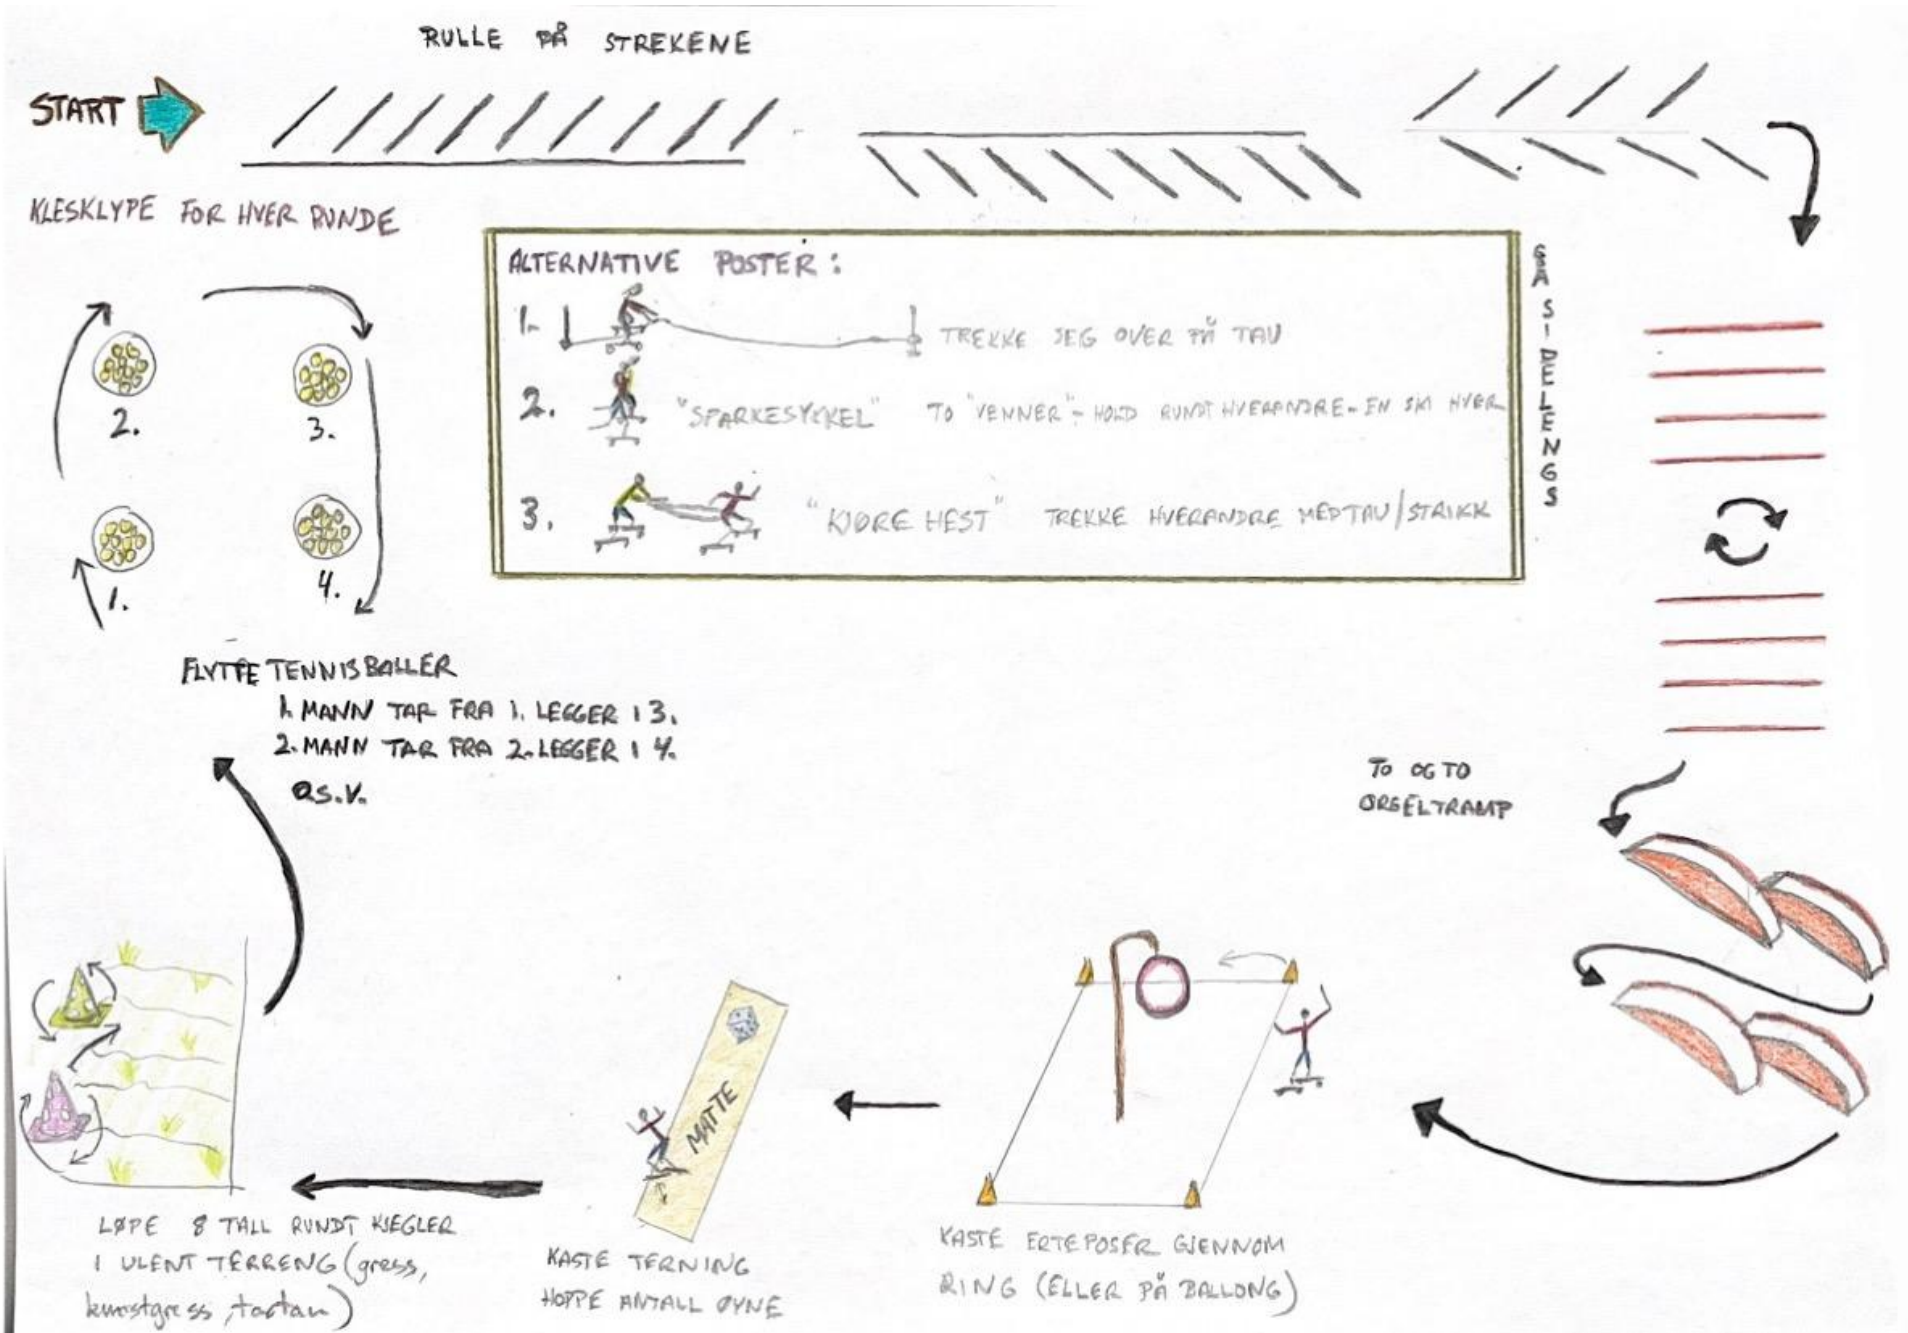 RULLE PÅ STREKENE
START
KLESKLYPE FOR HVER RUNDE
ALTERNATIVE POSTER:
1. TREKKE SEG OVER PÅ TAU
2. "SPARKESYKKEL" TO "VENNER" - HOLD RUNDT HVERANDRE - EN SKI HVER
3. "KJØRE HEST" TREKKE HVERANDRE MED TAU/STRIKK
GÅ SIDELENGS
2.
3.
1.
4.
FLYTTE TENNISBALLER
1. MANN TAR FRA 1. LEGGER I 3.
2. MANN TAR FRA 2. LEGGER I 4.
O.S.V.
TO OG TO
ORGELTRAMP
MATTE
LØPE 8 TALL RUNDT KJEGLER
I ULENT TERRENG (gress,
kunstgress, tartan)
KASTE TERNING
HOPPE ANTALL ØYNE
KASTE ERTEPOSER GJENNOM
RING (ELLER PÅ BALLONG)